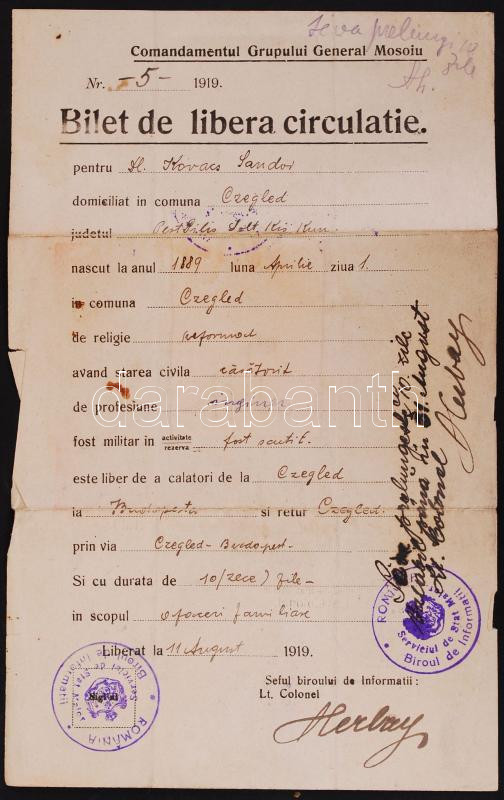 prelungi 10
zile
Comandamentul Grupului General Mosoiu
Nr. -5- 1919.
Bilet de libera circulatie.
pentru Dl. Kovacs Sandor
domiciliat in comuna Czegled
judetul Pest Pilis Solt, Kis Kun.
nascut la anul 1889 luna Aprilie ziua 1.
in comuna Czegled
de religie reformat
avand starea civila căsătorit
de profesiune inginer
fost militar in activitate
rezerva fost scutit.
este liber de a calatori de la Czegled
la Budapesta si retur Czegled.
prin via Czegled-Budapest.
Si cu durata de 10 (zece) zile-
in scopul afaceri familiare
Liberat la 11 August 1919.
Seful biroului de informatii:
Lt. Colonel
Herbay
Sigiliul
ROMÂNIA
Serviciul de Stat Major
Biroul de Informatii
ROMÂNIA
Serviciul de Stat Major
Biroul de Informatii
prelungeste 10 zile
31 August
Lt. Colonel Herbay
darabanth